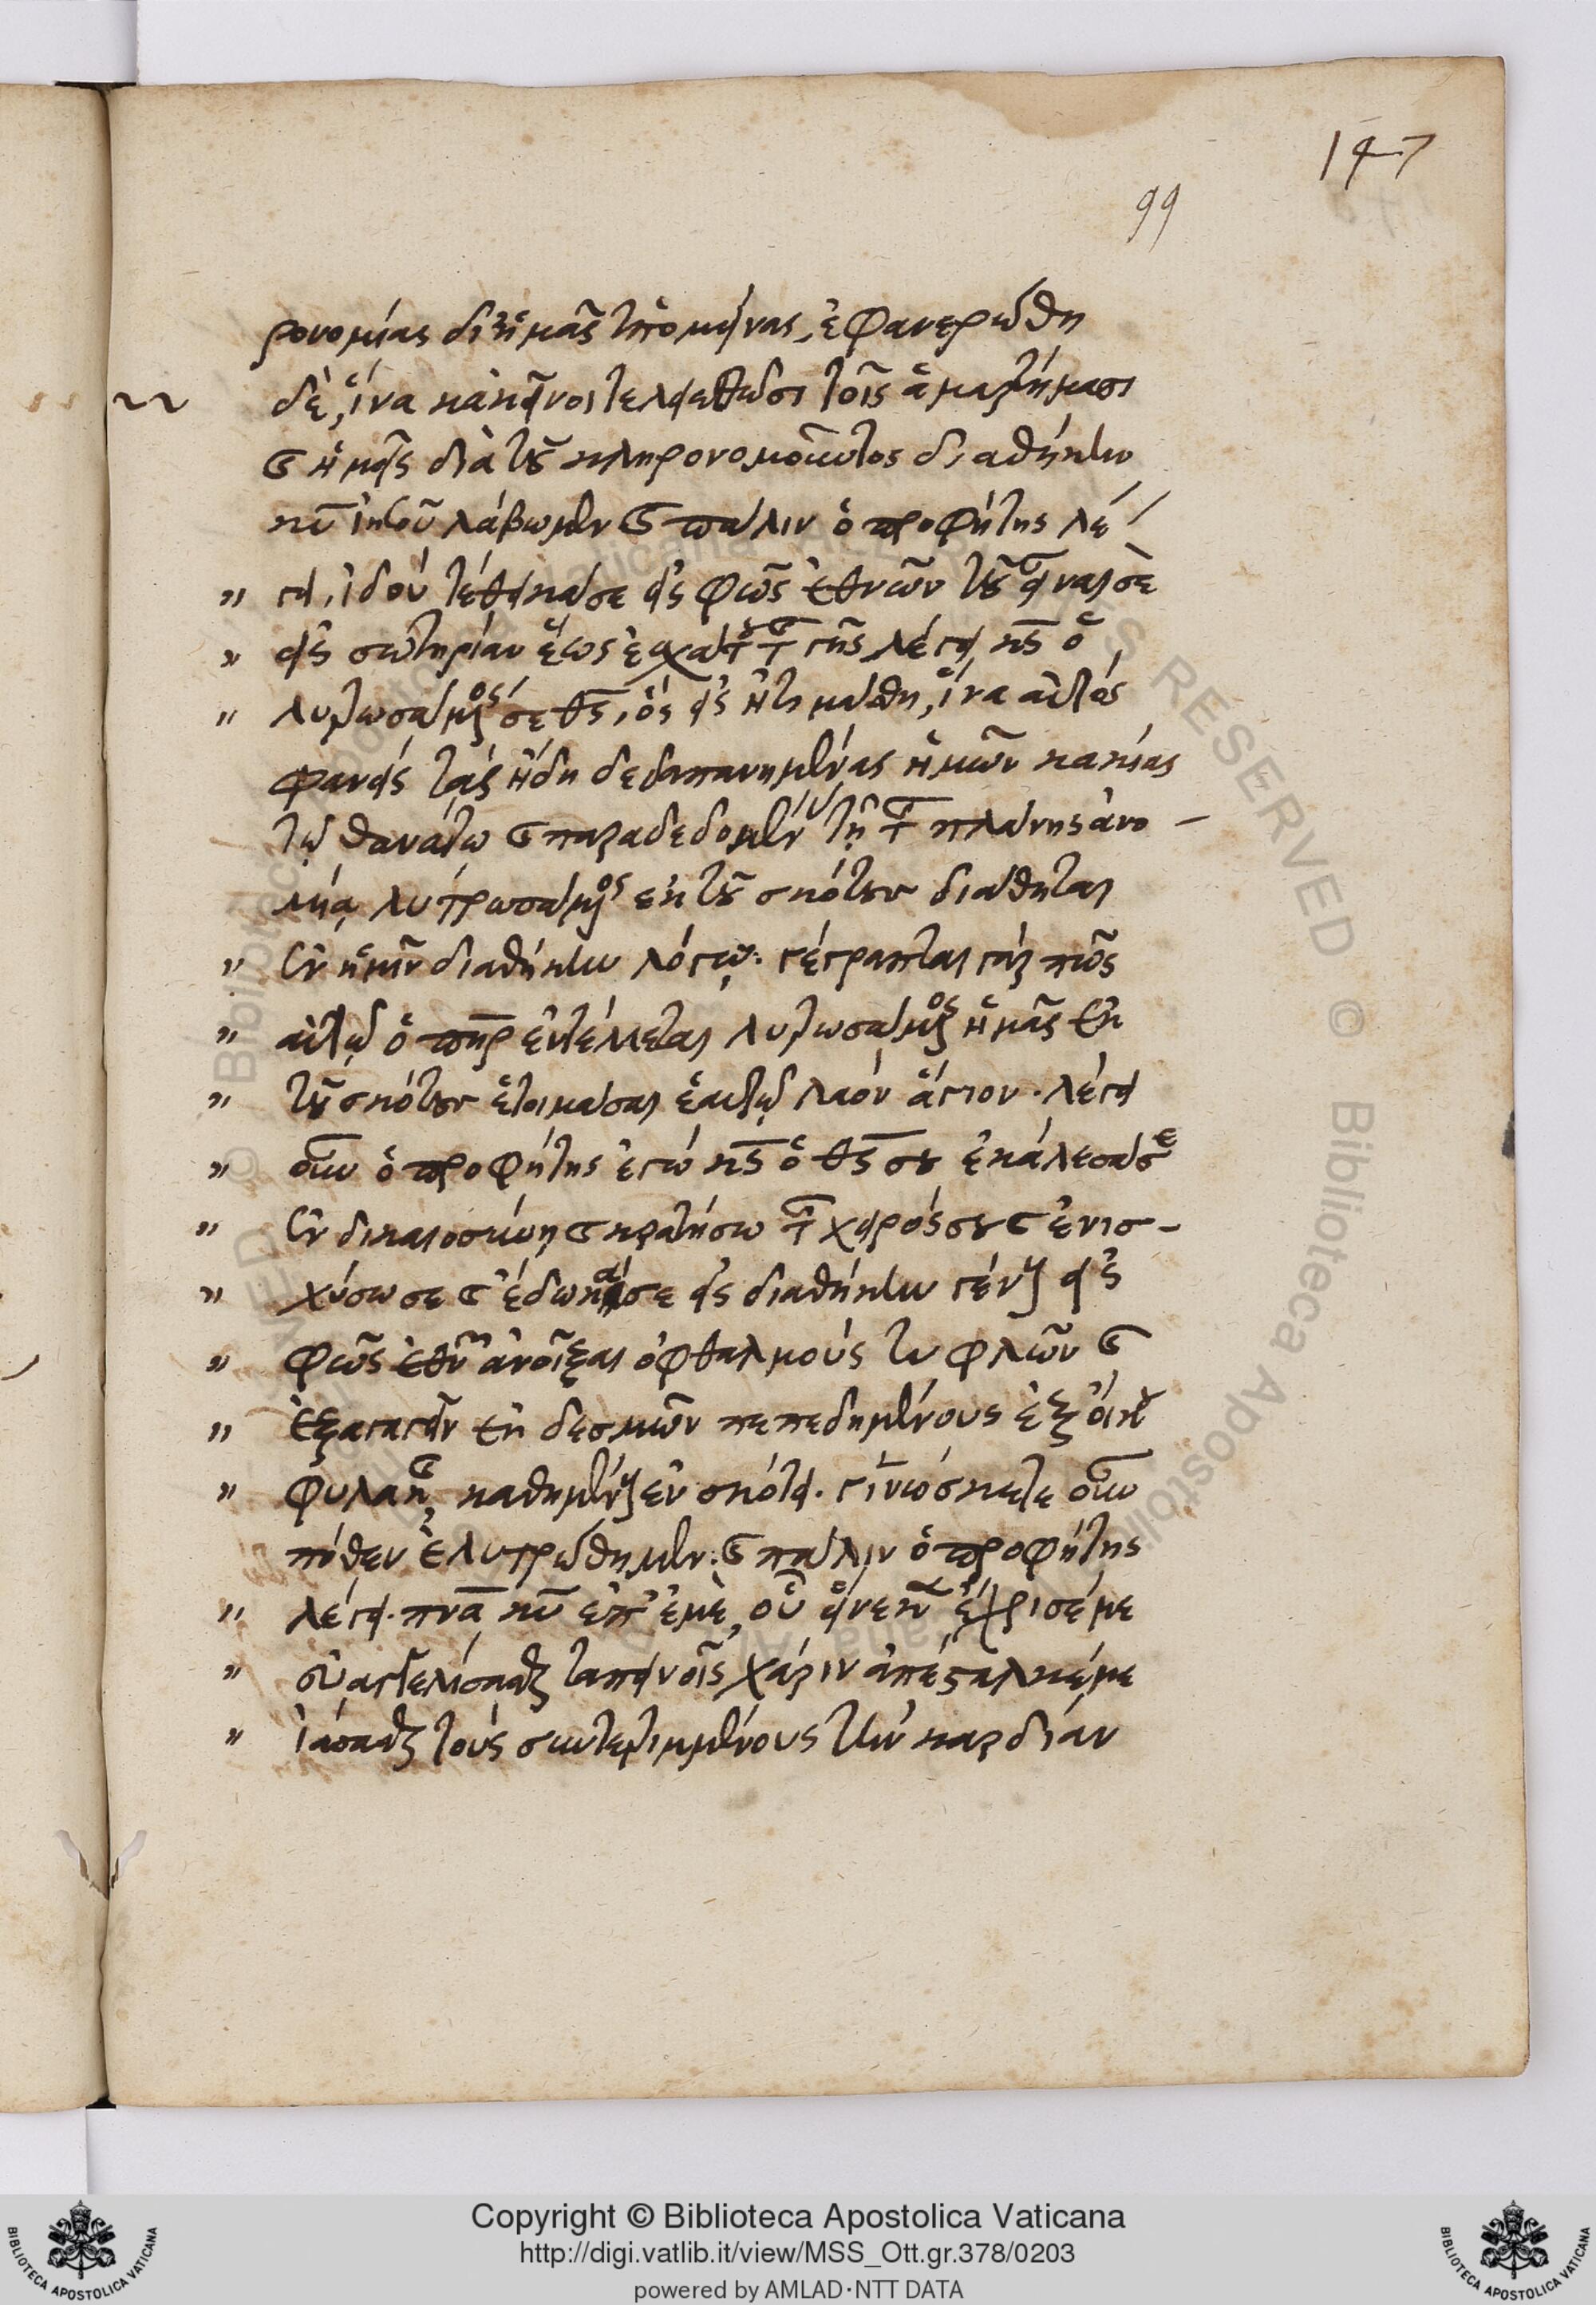 147
99
ρονομίας δι' ἡμᾶς ὑπομείνας, ἐφανερώθη
δὲ, ἵνα κἀκεῖνοι τελειωθῶσι τοῖς ἁμαρτήμασι
καὶ ἡμεῖς διὰ τοῦ κληρονομοῦντος διαθήκην
κυ ἰησοῦ λάβωμεν καὶ πάλιν ὁ προφήτης λέ
γει, ἰδού τέθεικά σε εἰς φῶς ἐθνῶν τοῦ εἶναι σε
εἰς σωτηρίαν ἕως ἐσχάτου τῆς γῆς λέγει κς ὁ
λυτρωσάμενος σε θς, ὃς εἰς ἡτοιμάσθη, ἵνα αὐτὸς
φανείς τὰς ἤδη δεδαπανημένας ἡμῶν κακίας
τῷ θανάτῳ καὶ παραδεδομέν τῇ τῆς πλάνης ἀνο-
μίᾳ λυτρωσάμενος ἐκ τοῦ σκότους διάθηται
ἐν ἡμῖν διαθήκην λόγῳ: γέγραπται γὰρ πῶς
αὐτῷ ὁ πηρ ἐντέλλεται λυτρωσάμενος ἡμᾶς ἐκ
τοῦ σκότους ἑτοιμάσαι ἑαυτῷ λαόν ἅγιον· λέγει
οὖν ὁ προφήτης ἐγώ κς ὁ θς σου ἐκάλεσά σε
ἐν δικαιοσύνῃ καὶ κρατήσω τῆς χειρός σου καὶ ἐνισ-
χύσω σε καὶ ἔδωκά σε εἰς διαθήκην γένους εἰς
φῶς ἐθνῶν ἀνοῖξαι ὀφθαλμούς τυφλῶν καὶ
ἐξαγαγεῖν ἐκ δεσμῶν πεπεδημένους ἐξ οἴκου
φυλακῆς καθημένους ἐν σκότει. γινώσκετε οὖν
πόθεν ἐλυτρώθημεν: καὶ πάλιν ὁ προφήτης
λέγει· πνα κυ ἐπ' ἐμὲ, οὗ εἵνεκεν ἔχρισέ με
εὐαγγελίσασθαι ταπεινοῖς χάριν ἀπέσταλκέ με
ἰάσασθαι τοὺς συντετριμμένους τὴν καρδίαν
Copyright © Biblioteca Apostolica Vaticana
http://digi.vatlib.it/view/MSS_Ott.gr.378/0203
powered by AMLAD·NTT DATA